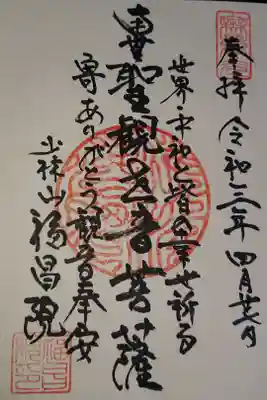 奉拝 令和三年四月廿日
世界平和と皆の幸せ祈る
聖観世音菩薩
寄ありがとう観音奉安
少林山福昌院